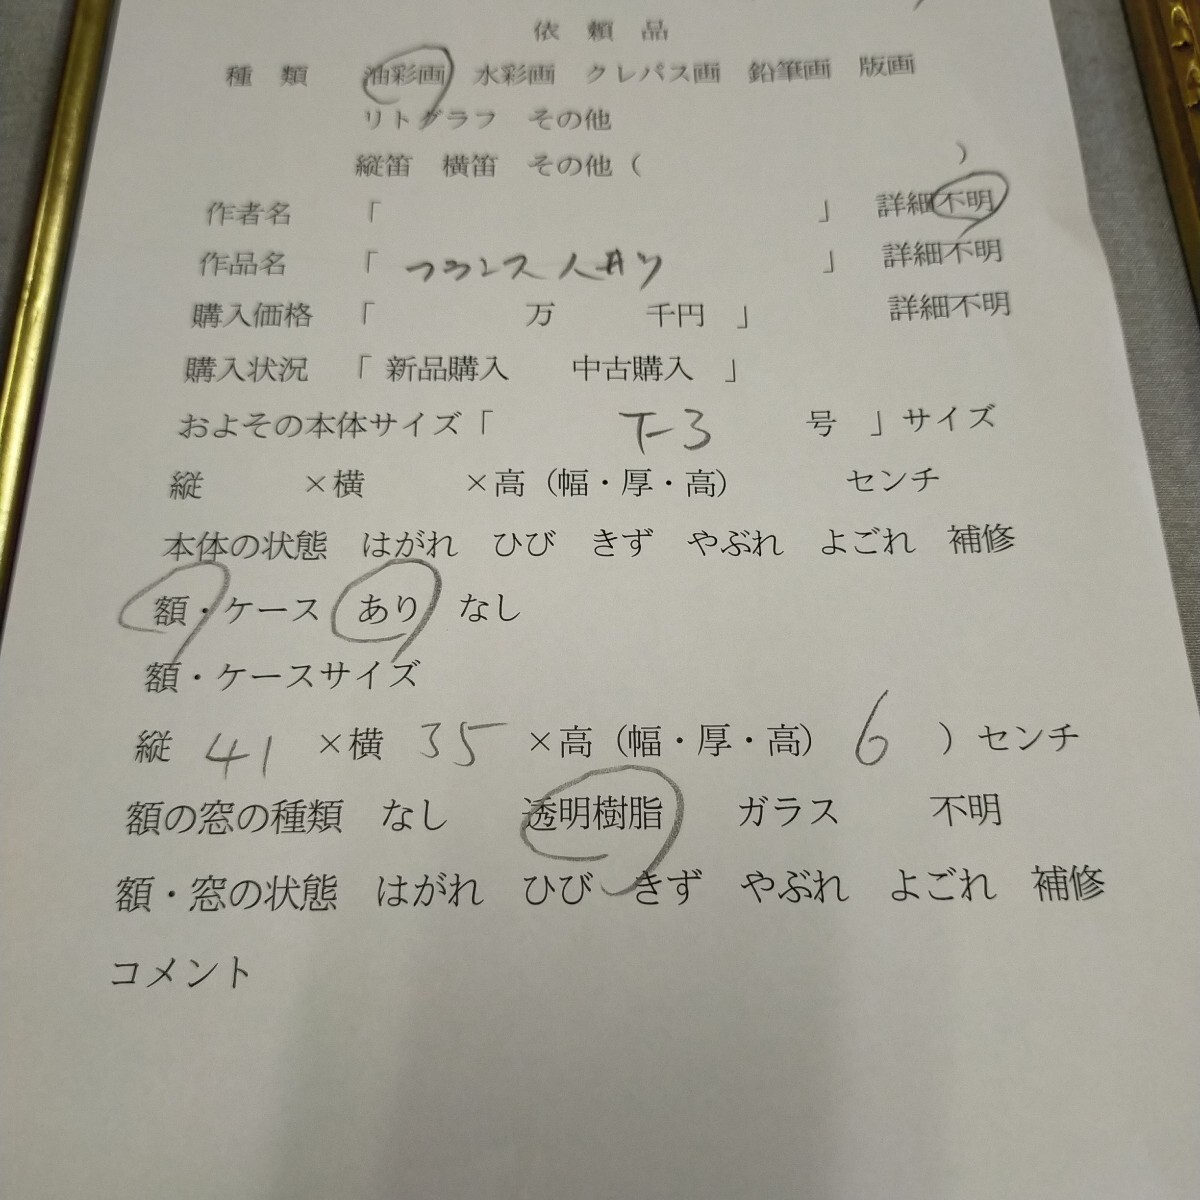 依頼品
種類 油彩画 水彩画 クレパス画 鉛筆画 版画
リトグラフ その他
縦笛 横笛 その他（ ）
作者名 「 」 詳細不明
作品名 「 フランス人 」 詳細不明
購入価格 「 万 千円 」 詳細不明
購入状況 「 新品購入 中古購入 」
およその本体サイズ「 F-3 号 」サイズ
縦 ×横 ×高（幅・厚・高） センチ
本体の状態 はがれ ひび きず やぶれ よごれ 補修
額・ケース あり なし
額・ケースサイズ
縦 41 ×横 35 ×高（幅・厚・高） 6 ）センチ
額の窓の種類 なし 透明樹脂 ガラス 不明
額・窓の状態 はがれ ひび きず やぶれ よごれ 補修
コメント